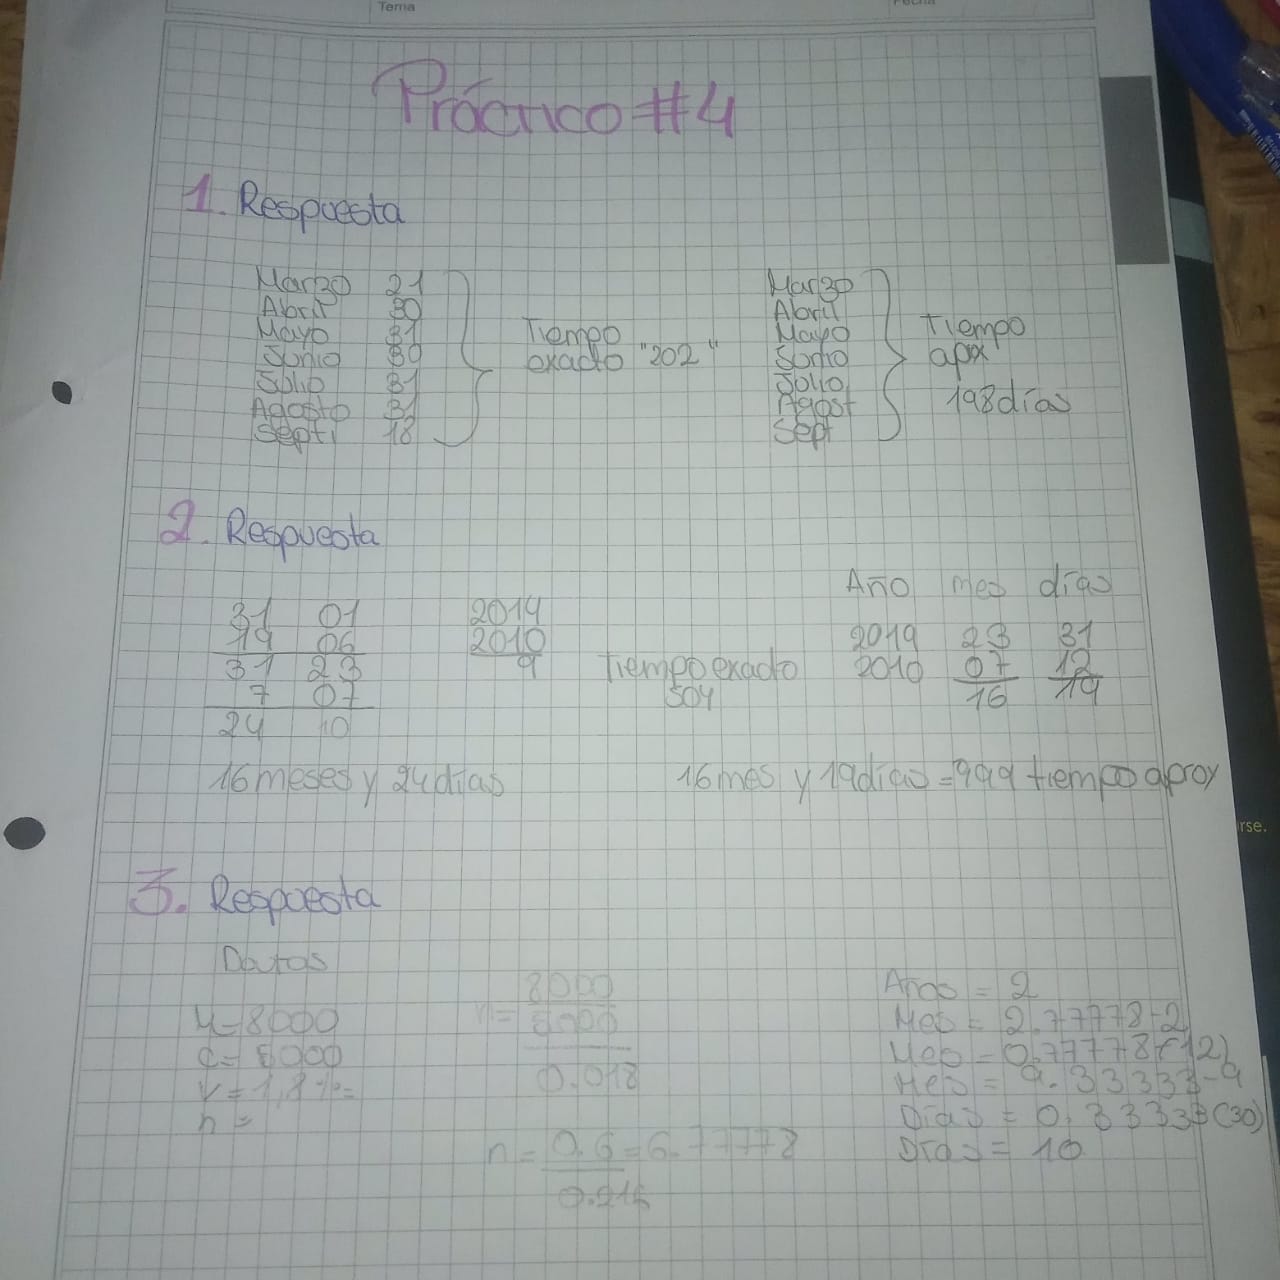 Tema
Fecha
Práctico #4
1. Respuesta
Marzo 21
Abril 30
Mayo 31
Junio 30
Julio 31
Agosto 31
Septi 18
Tiempo
exacto "202"
Marzo
Abril
Mayo
Junio
Julio
Agost
Sept
Tiempo
apix
198 días
2. Respuesta
31 01 2014
19 06 2010
31 23 9
7 07
24 10
Tiempo exacto
504
Año mes días
2019 23 31
2010 07 12
16 19
16 meses y 24 días
16 mes y 19 días = 999 tiempo aprox
rse.
3. Respuesta
Datos
M= 8000
C= 5000
V= 1,8%=
n=
n= 8000
5000
0.018
n= 0.6 = 6.77778
0.216
Años = 2
Mes = 2.77778-2
Mes = 0.77778(12)
Mes = 9.33333-9
Días = 0.33333(30)
Días = 10